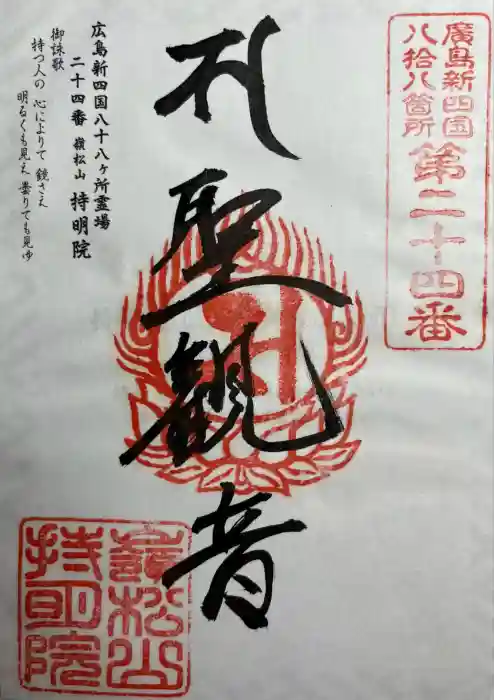 廣島新四国
八拾八箇所
第二十四番
札
聖観音
広島新四国八十八ヶ所霊場
二十四番 嶺松山 持明院
御詠歌
持つ人の 心によりて 鏡さえ
明るくも見え 曇りても見ゆ
嶺松山
持明院